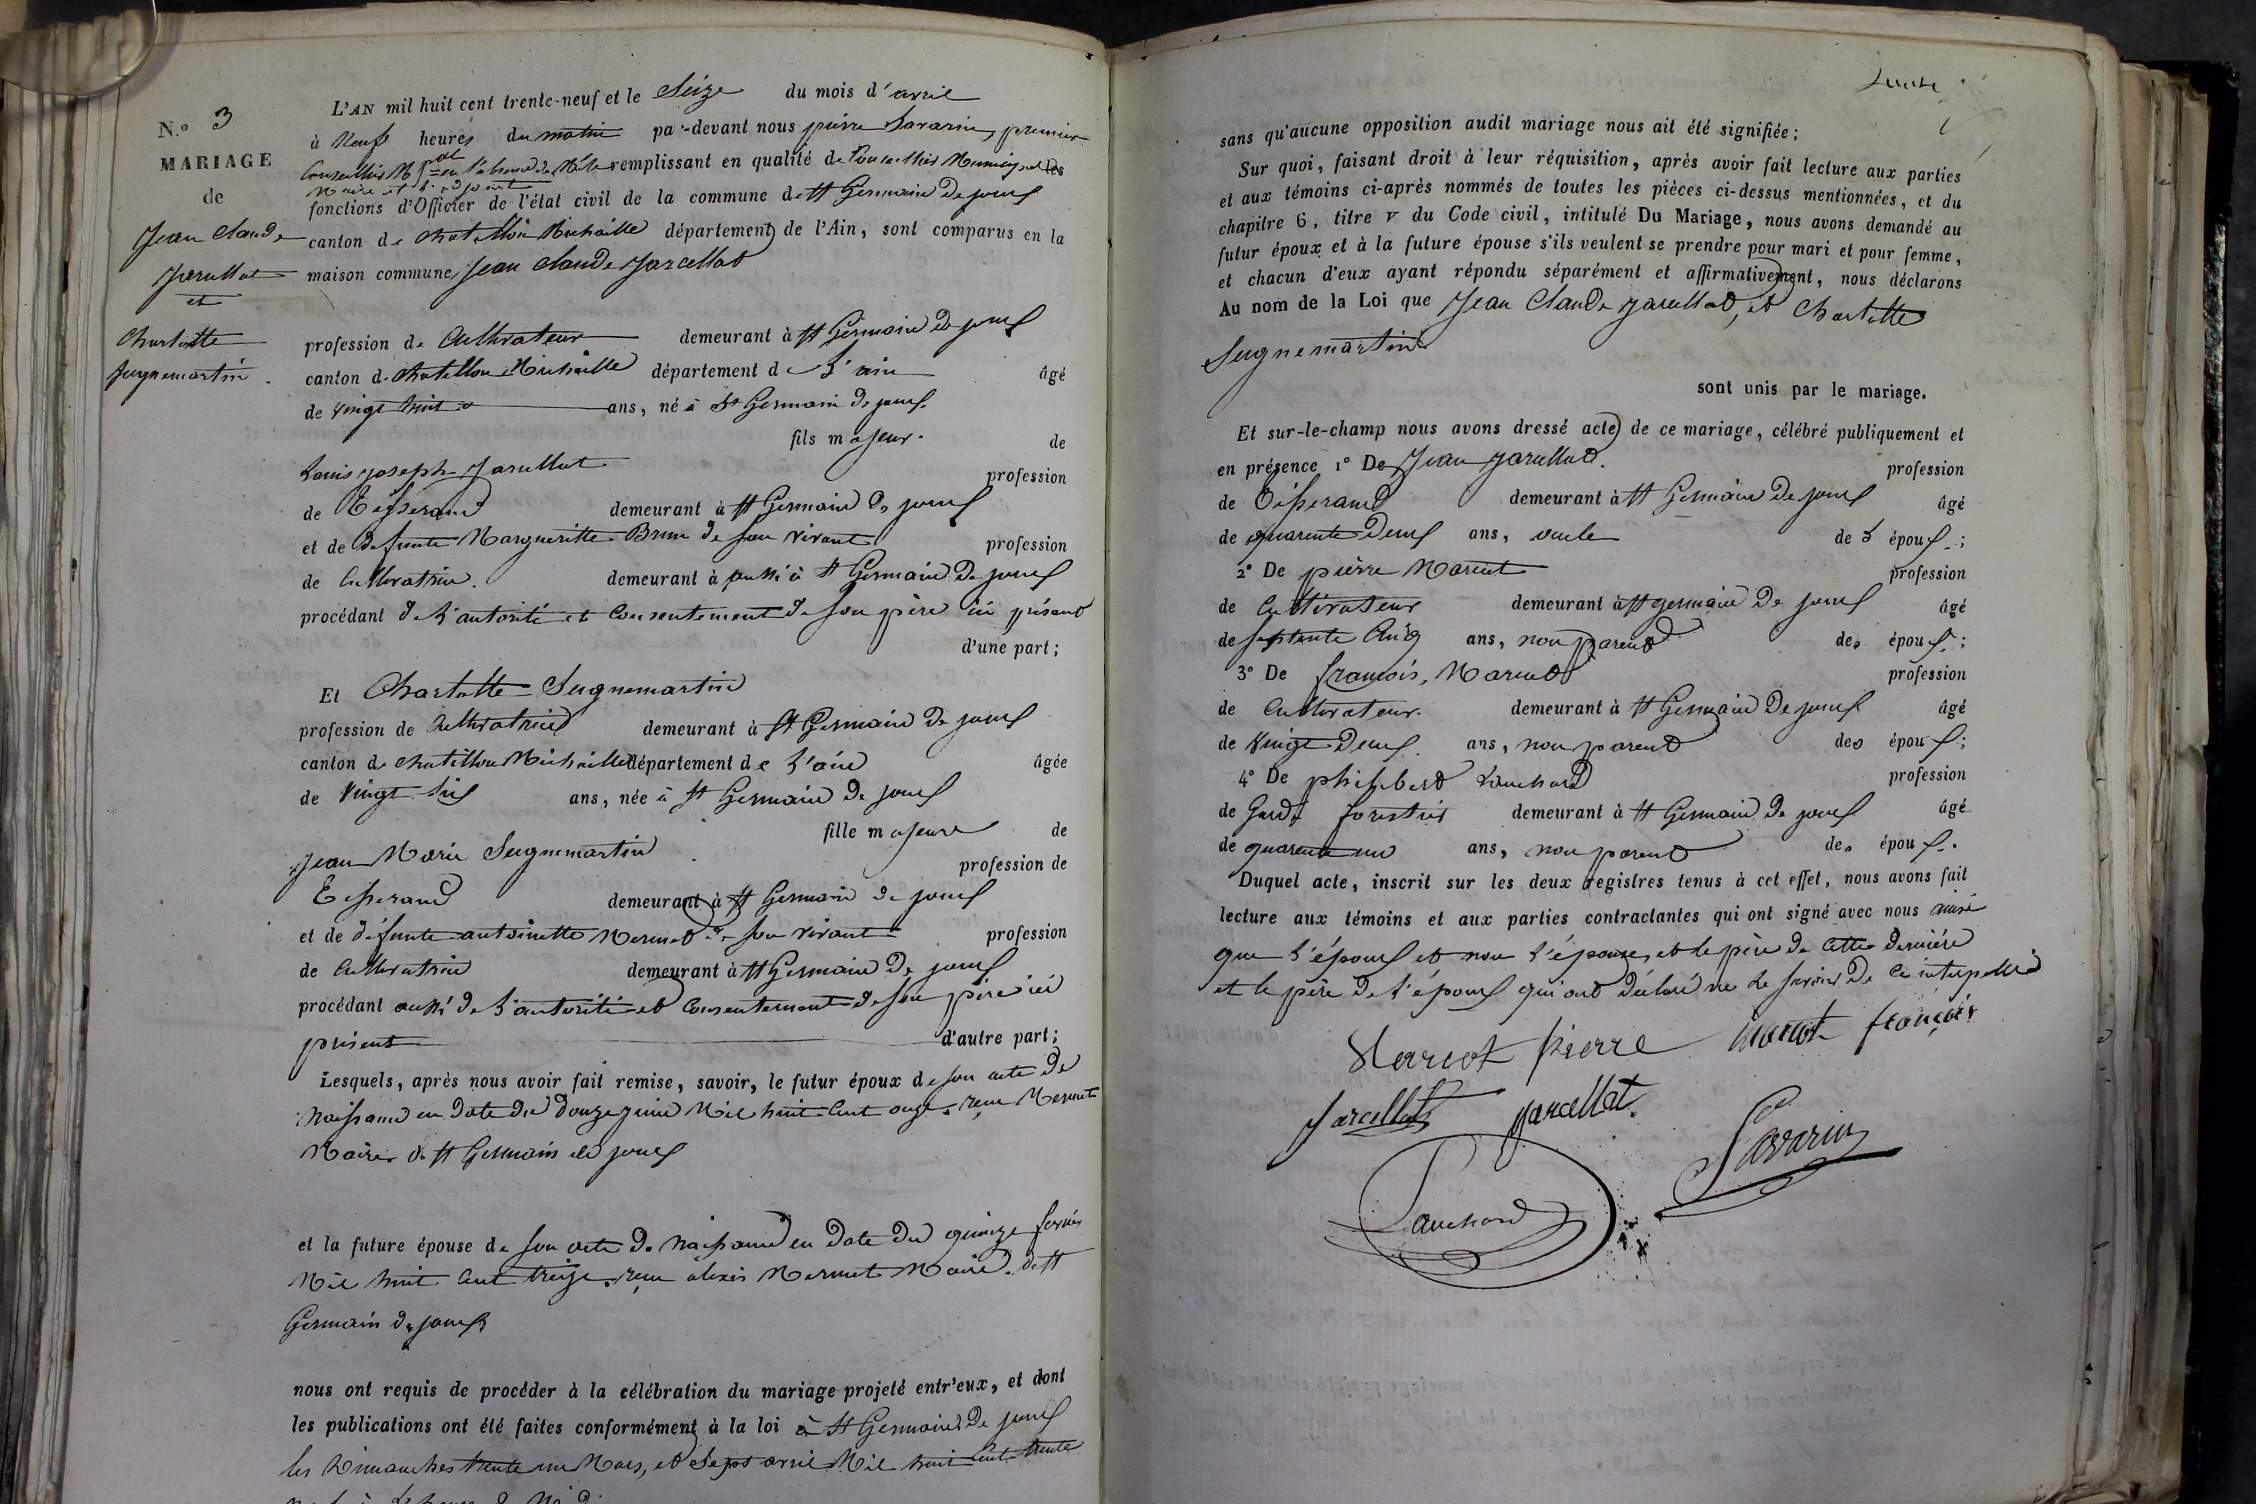 N.º 3
MARIAGE
de
Jean Claude
Jarcellat
et
Charlotte
Seignemartin.
L'AN mil huit cent trente-neuf et le Seize du mois d'avril
à Neuf heures du matin par-devant nous pierre Savarin, premier
Conseiller Mpal en l'absence de Mr le remplissant en qualité de Conseiller Municipal les
Maire et l'adjoint
fonctions d'Officier de l'état civil de la commune de St Germain De joux
canton de Chatillon Michaille département de l'Ain, sont comparus en la
maison commune Jean Claude Jarcellat
profession de Cultivateur demeurant à St Germain De joux
canton de Chatillon Michaille département de L'ain âgé
de Vingt huit ans, né à St Germain De joux.
fils majeur de
Louis joseph Jarcellat profession
de Tisserand demeurant à St Germain De joux
et de defunte Margueritte Brun de son vivant profession
de Cultivatrice. demeurant à aussi à St Germain De joux
procédant de L'autorité et Consentement de son père ici présent
d'une part;
Et Charlotte Seignemartin
profession de Cultivatrice demeurant à St Germain De joux
canton de Chatillon Michaille département de L'ain âgée
de Vingt Six ans, née à St Germain De joux
fille majeure de
Jean Marie Seignemartin profession de
Tisserand demeurant à St Germain De joux
et de défunte antoinette Mermet de son vivant profession
de Cultivatrice demeurant à St Germain De joux
procédant aussi de L'autorité et Consentement de son père ici
présent d'autre part;
Lesquels, après nous avoir fait remise, savoir, le futur époux de son acte de
Naissance en date du douze juin Mil huit Cent onze, reçu Mermet
Maire de St Germain de joux
et la future épouse de son acte de Naissance en date du quinze fevrier
Mil huit Cent treize, reçu alexis Mermet Maire de St
Germain De joux
nous ont requis de procéder à la célébration du mariage projeté entr'eux, et dont
les publications ont été faites conformément à la loi à St Germain De joux
les Dimanches trente un Mars, et Sept avril Mil huit Cent trente
sans qu'aucune opposition audit mariage nous ait été signifiée;
Sur quoi, faisant droit à leur réquisition, après avoir fait lecture aux parties
et aux témoins ci-après nommés de toutes les pièces ci-dessus mentionnées, et du
chapitre 6, titre v du Code civil, intitulé Du Mariage, nous avons demandé au
futur époux et à la future épouse s'ils veulent se prendre pour mari et pour femme,
et chacun d'eux ayant répondu séparément et affirmativement, nous déclarons
Au nom de la Loi que Jean Claude Jarcellat, et Charlotte
Seignemartin
sont unis par le mariage.
Et sur-le-champ nous avons dressé acte de ce mariage, célébré publiquement et
en présence 1º De Jean Jarcellat. profession
de Tisserand demeurant à St Germain De joux âgé
de quarente Deux ans, oncle de L' époux;
2º De pierre Marent profession
de Cultivateur demeurant à St germain De joux âgé
de septente Cinq ans, non parent des époux;
3º De françois Marent profession
de Cultivateur. demeurant à St Germain De joux âgé
de Vingt Deux ans, non parent des époux;
4º De philibert Lauchard profession
de Garde forestier demeurant à St Germain De joux âgé
de quarente un ans, non parent des époux.
Duquel acte, inscrit sur les deux registres tenus à cet effet, nous avons fait
lecture aux témoins et aux parties contractantes qui ont signé avec nous ainsi
que L'époux et non L'épouze, et le père de Cette dernière
et le père de L'époux qui ont déclaré ne Le savoir De ce interpellé
Marent pierre Marent françois
Jarcellat Jarcellat
Savarin
Lauchard